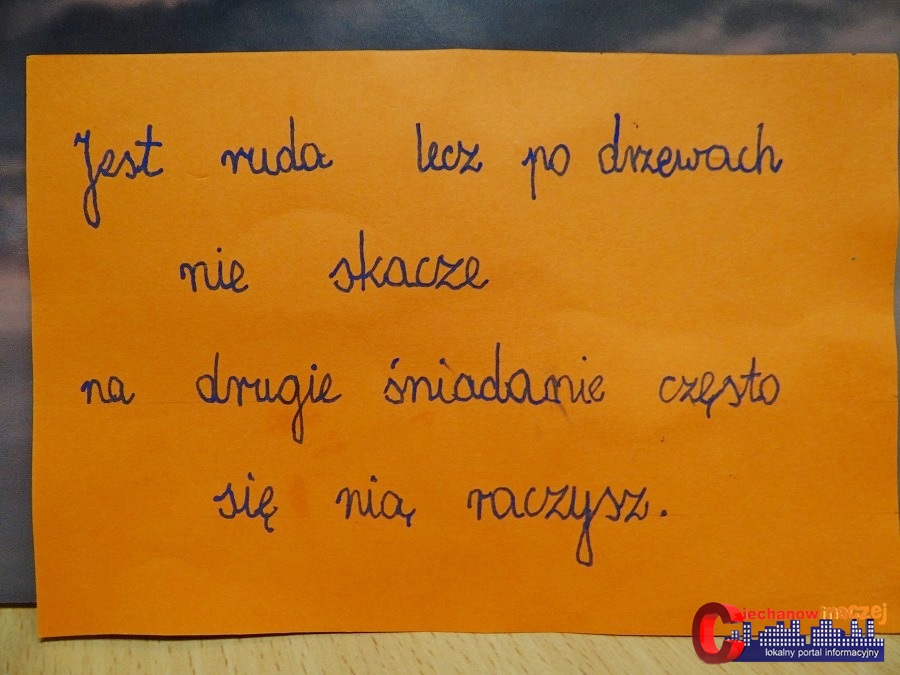 Jest ruda lecz po drzewach
nie skacze
na drugie śniadanie często
się nią raczysz.
Ciechanow inaczej
lokalny portal informacyjny